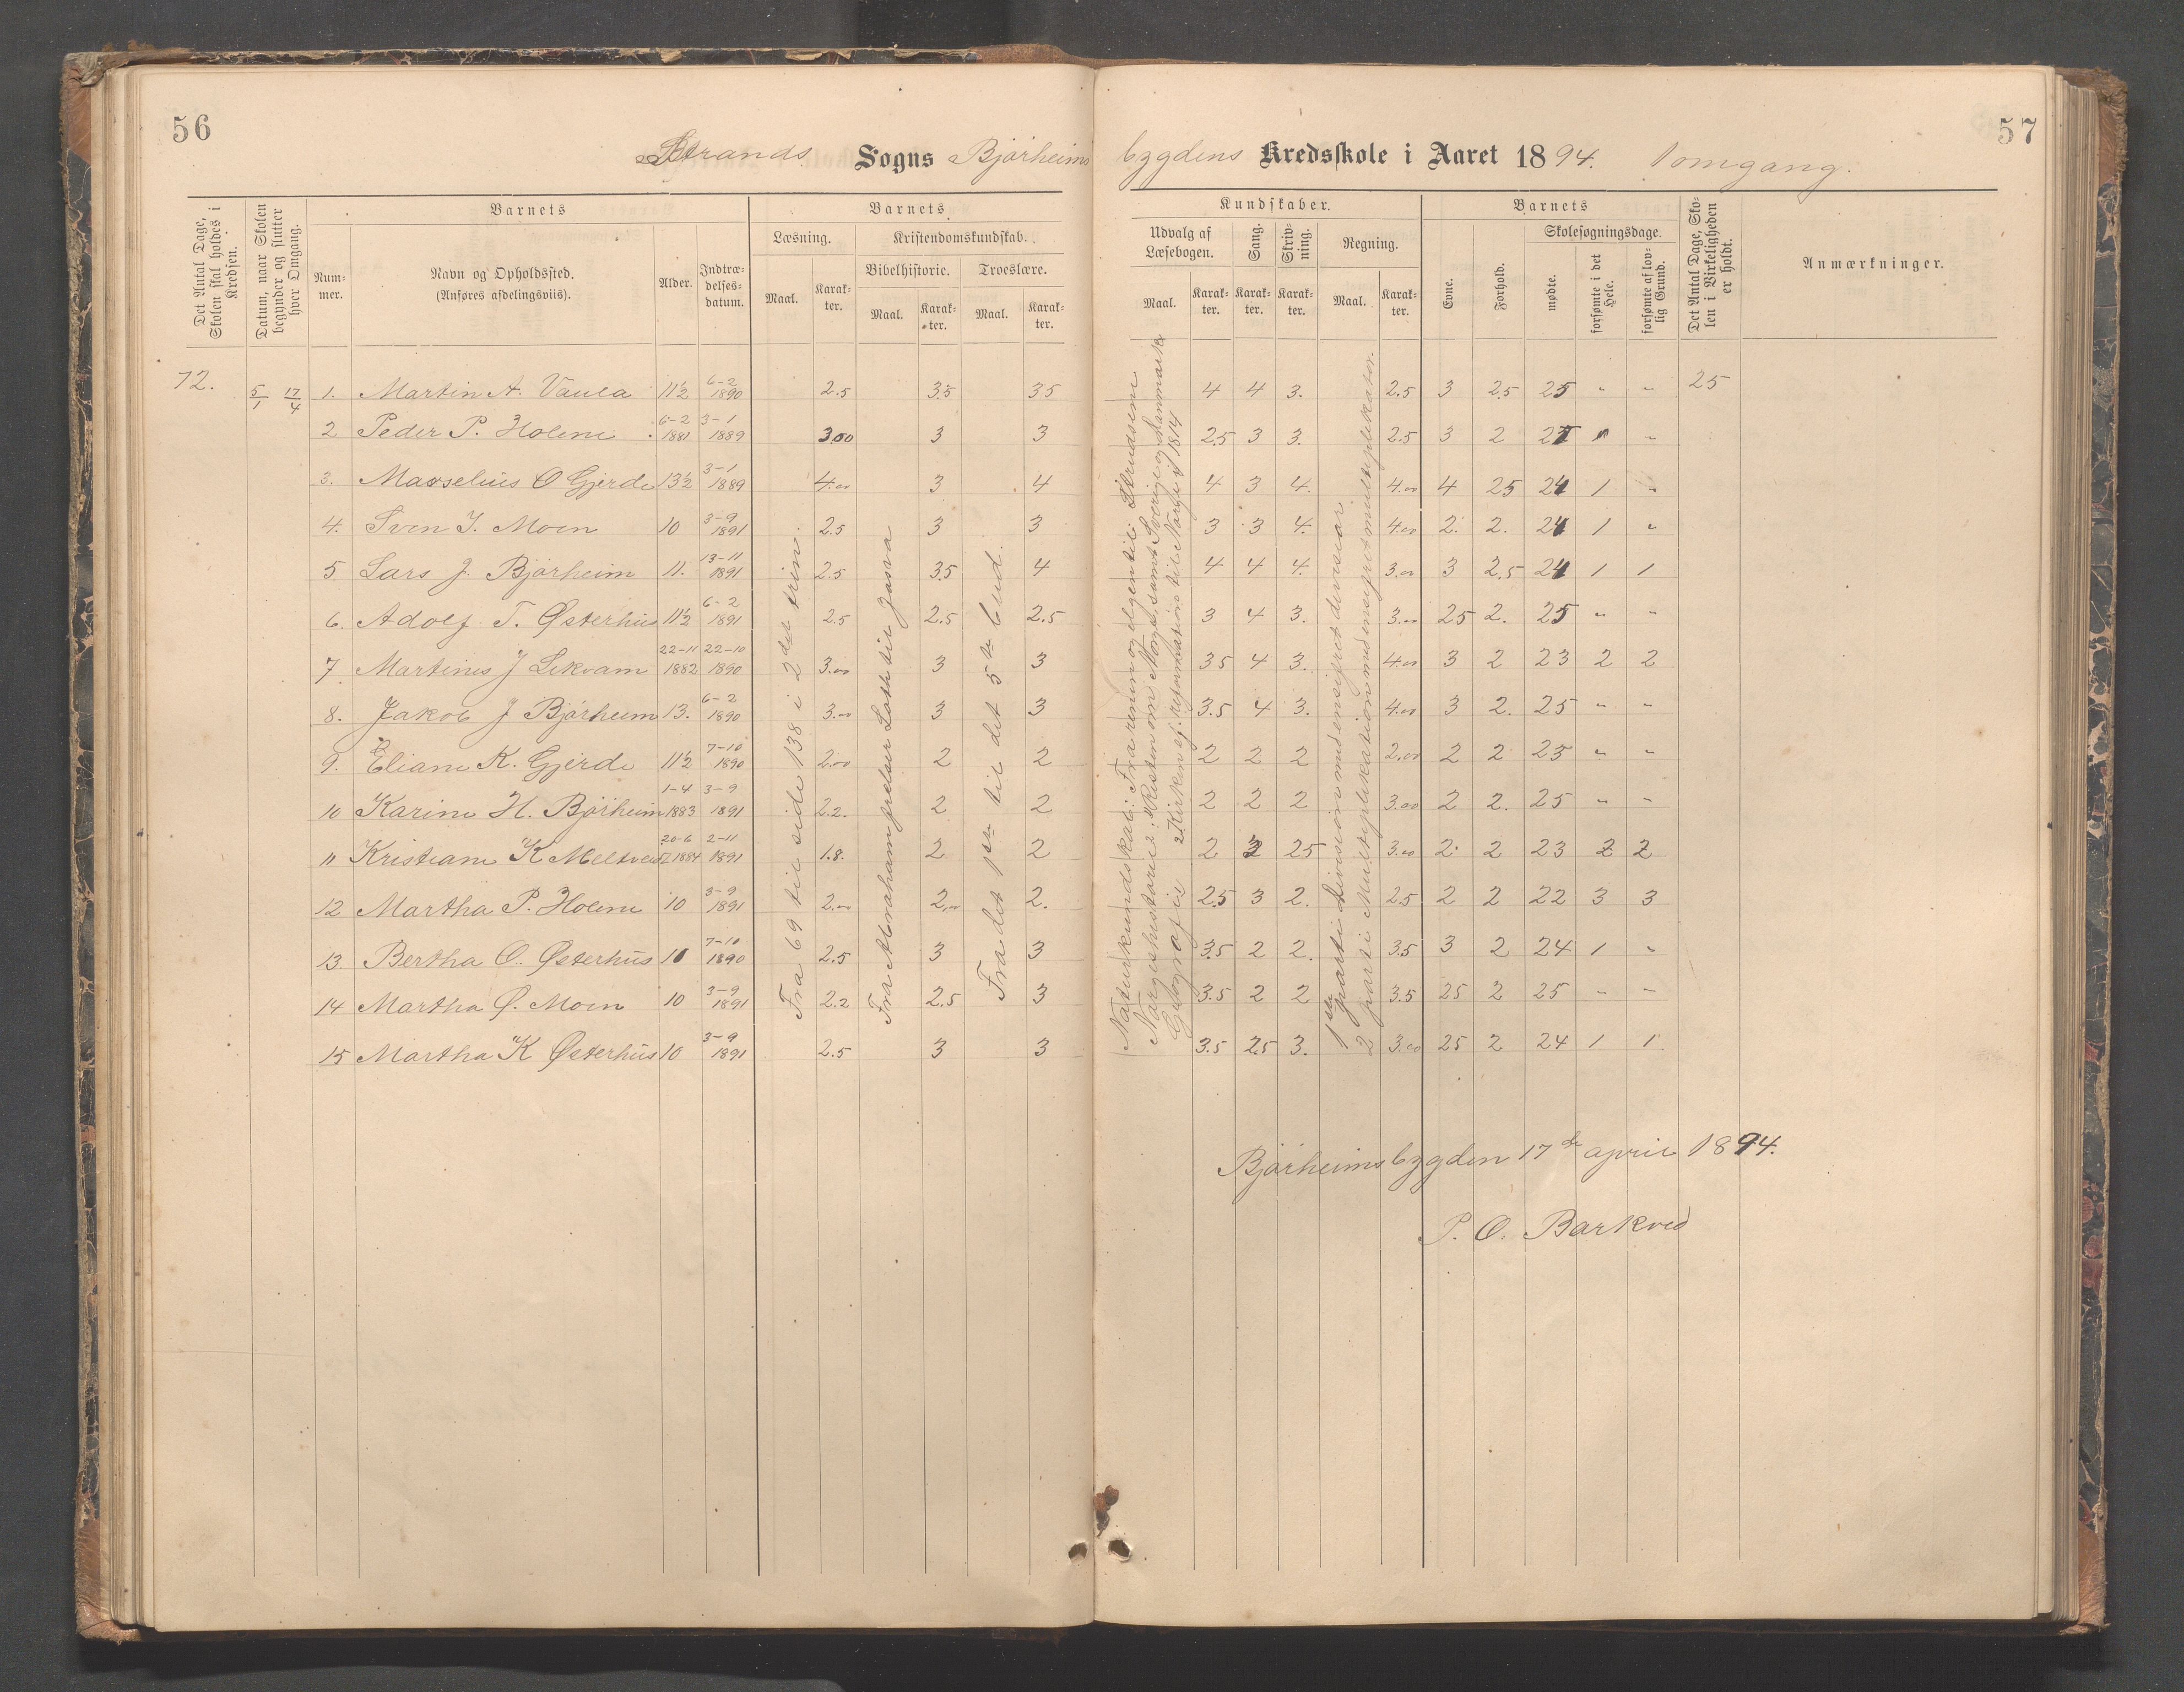 56
57
Strands Sogns Bjørheims bygdens Kredsskole i Aaret 1894. 1 omgang.
Det Antal Dage, Skolen skal holdes i Kredsen.
Datum, naar Skolen begynder og slutter hver Omgang.
Barnets
Num-mer.
Navn og Opholdssted.
(Anføres afdelingsviis).
Alder.
Indtræ-delses-datum.
Barnets
Læsning.
Maal.
Karak-ter.
Kristendomskundskab.
Bibelhistorie.
Troeslære.
Maal.
Karak-ter.
Maal.
Karak-ter.
Kundskaber.
Udvalg af Læsebogen.
Sang.
Skriv-ning.
Regning.
Maal.
Karak-ter.
Karak-ter.
Karak-ter.
Maal.
Karak-ter.
Barnets
Evne.
Forhold.
Skolesøgningsdage.
mødte.
forsømte i det Hele.
forsømte af lov-lig Grund.
Det Antal Dage, Sko-len i Virkeligheden er holdt.
Anmærkninger.
72. 5/1 17/4 1. Martin A. Vaula 11½ 6-2 1890 2.5 3.5 3.5 4 4 3. 2.5 3 2.5 25 " " 25
2 Peder P. Holene 6-2 1881 3-1 1889 3.00 3 3 2.5 3 3. 2.5 3 2 "
3. Marselius O Gjerde 13½ 3-1 1889 4.00 3 4 4 3 4. 4.00 4 25 24 1 "
4. Sven I. Moen 10 3-9 1891 2.5 3 3 3 3 4. 4.00 2. 2. 24 1 "
5 Lars J. Bjørheim 11. 13-11 1891 2.5 3.5 4 4 4 4. 3.00 3 2.5 24 1 1
6. Adolf T. Østerhus 11½ 6-2 1891 2.5 2.5 2.5 3 4 3. 3.00 25 2. 25 " "
7 Martinus J Lekvam 22-11 1882 22-10 1890 3.00 3 3 35 4 3. 4.00 3 2 23 2 2
8. Jakob J Bjørheim 13. 6-2 1890 3.00 3 3 3.5 4 3. 4.00 3 2. 25 " "
9. Eliane K. Gjerde 11½ 7-10 1890 2.00 2 2 2 2 2 2.00 2 2 25 " "
10 Karine H. Bjørheim 1-4 1883 3-9 1891 2.2. 2 2 2 2 2 3.00 2 2. 25 " "
11 Kristiane K Meltveit 20-6 1884 2-11 1891 1.8. 2 2 2 3 25 3.00 2. 2 23 2 2
12 Martha P. Holene 10 3-9 1891 2.00 2.00 2. 2.5 3 2. 2.5 2 2 22 3 3
13. Bertha O. Østerhus 10 7-10 1890 2.5 3 3 3.5 2 2. 3.5 3 2 24 1 "
14 Martha Ø. Moen 10 3-9 1891 2.2 2.5 3 3.5 2 2 3.5 25 2 25 " "
15 Martha K Østerhus 10 3-9 1891 2.5 3 3 3.5 2.5 3. 3.00 25 2 24 1 1
Fra 69 til side 138 i 2det trin.
Fra Abrahamfrelser Loth til Josva
Fra det 1ste til det 5te bud.
Naturkundskab: Fra renen og elgen til
Norgeshistorie: Resten om Norge, samt Sverige og Danmark
Geografi: 2. Kirken ef. reformation til Norge i 1814
1ste parti Division med ensifret divisoar.
2 parti Multiplikation med ensifret multiplikator.
Bjørheimsbygden 17de april 1894.
P. O. Barkved